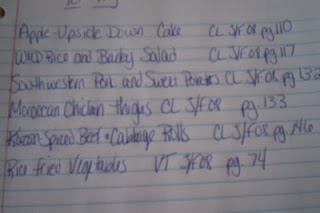 Apple Upside Down Cake CL J/F08 pg 110
Wild Rice and Barley Salad CL J/F08 pg 117
Southwestern Pork and Sweet Potatoes CL J/F08 pg 132
Moroccan Chicken thighs CL J/F08 pg. 133
Korean Spiced Beef + Cabbage Rolls CL J/F08 pg. 146
Rice Fried Vegetables VT J/F08 pg. 74